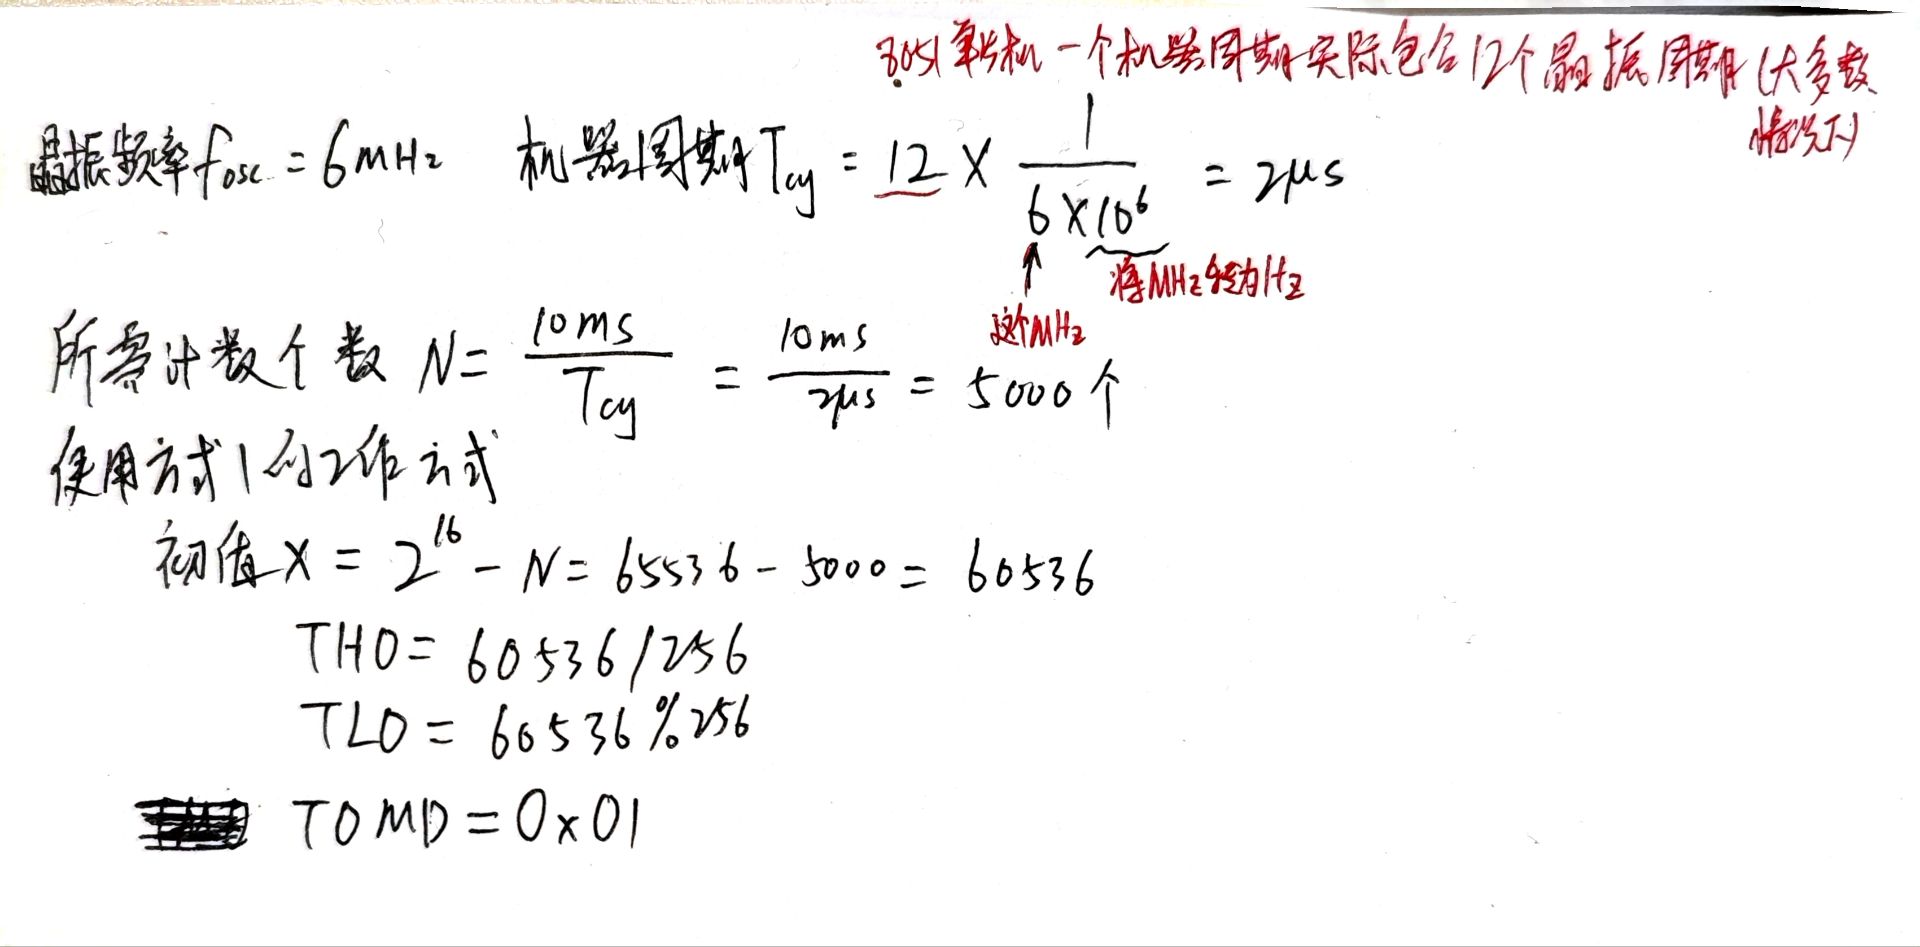 8051单片机一个机器周期实际包含12个晶振周期(大多数
情况下)
晶振频率fosc = 6MHz 机器周期Tcy = 12 × 1/(6×10⁶) = 2μs
这个MHz
将MHz转为Hz
所需计数个数 N = 10ms/Tcy = 10ms/2μs = 5000个
使用方式1的工作方式
初值X = 2¹⁶ - N = 65536 - 5000 = 60536
TH0 = 60536/256
TL0 = 60536%256
T0MD = 0x01